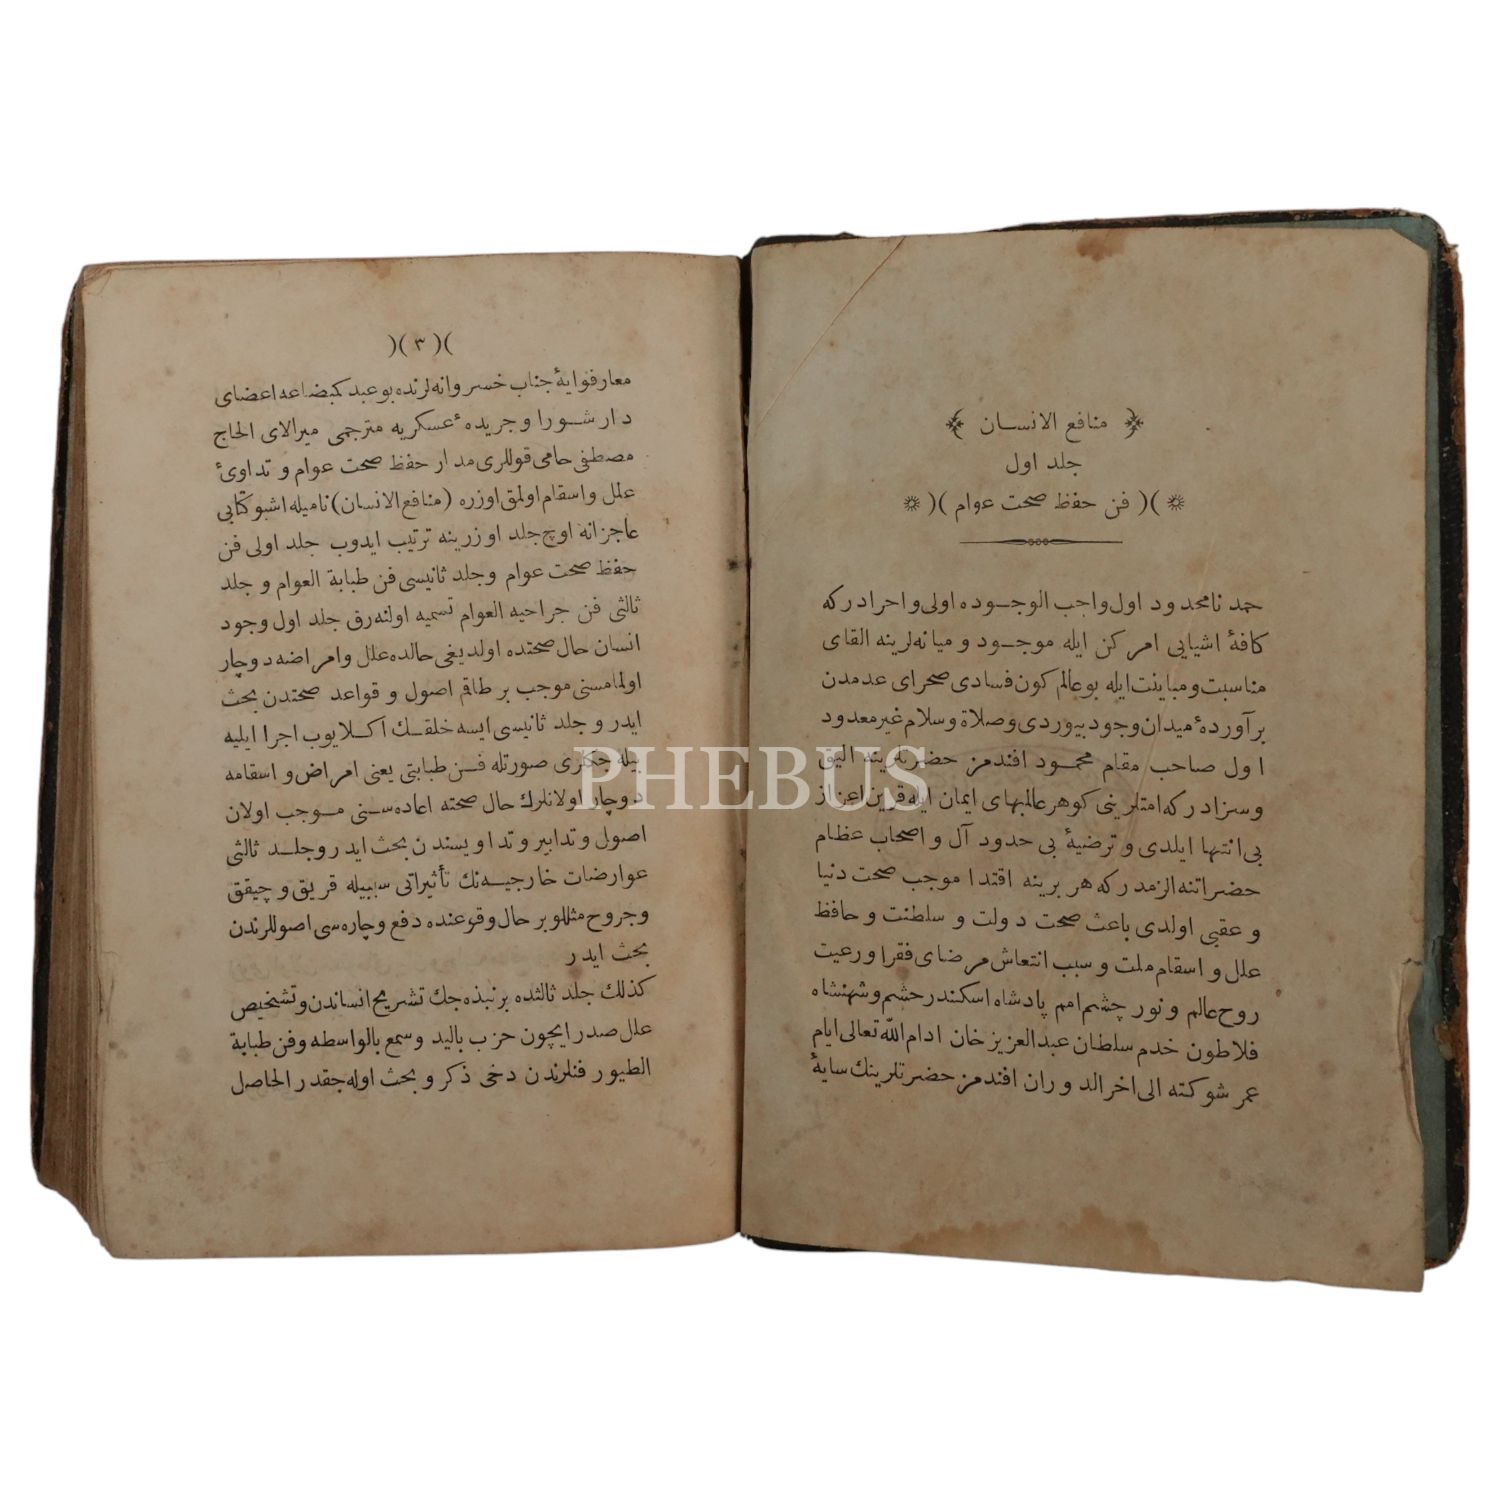 منافع الانسان
جلد اول
)( فن حفظ صحت عوام )(
حمد نامحدود اول واجب الوجوده اولی واحرادرکه
کافهٔ اشیایی امر کن ایله موجود و میانه لرینه القای
مناسبت و مباینت ایله بو عالم کون فسادی صحرای عدمدن
برآوردهٔ میدان وجود بیوردی وصلاة وسلام غیر معدود
اول صاحب مقام محمود افندمز حضرتلرینه الیق
وسزادرکه امتلرینی کوهر عالمبهای ایمان ایله قرین اعزاز
بی انتها ایلدی و ترضیهٔ بی حدود آل و اصحاب عظام
حضراتنه الزمدرکه هر برینه اقتدا موجب صحت دنیا
و عقبی اولدی باعث صحت دولت و سلطنت و حافظ
علل و اسقام ملت و سبب انتعاش مرضای فقرا ورعیت
روح عالم و نور چشم امم پادشاه اسکندر حشم وشهنشاه
فلاطون خدم سلطان عبدالعزیز خان ادام الله تعالی ایام
عمر شوکته الی اخر الدوران افندمز حضرتلرینك سایهٔ
)( ٣ )(
معارفوایهٔ جناب خسروانه لرنده بو عبد کمبضاعه اعضای
دار شورا وجریدهٔ عسکریه مترجمی میرالای الحاج
مصطفی حامی قوللری مدار حفظ صحت عوام و تداویٔ
علل واسقام اولمق اوزره (منافع الانسان) نامیله اشبو کتابی
عاجزانه اوچ جلد اوزرینه ترتیب ایدوب جلد اولی فن
حفظ صحت عوام وجلد ثانیسی فن طبابة العوام و جلد
ثالثی فن جراحیه العوام تسمیه اولنه رق جلد اول وجود
انسان حال صحتده اولدیغی حالده علل وامراضه دوچار
اولمامسنی موجب بر طاقم اصول و قواعد صحتدن بحث
ایدر و جلد ثانیسی ایسه خلقك اکلایوب اجرا ایلیه
بیله جکلری صورتله فن طبابتی یعنی امراض و اسقامه
دوچار اولانلرك حال صحته اعاده سنی موجب اولان
اصول و تدابیر و تداویسندن بحث ایدر وجلد ثالثی
عوارضات خارجیه نك تأثیراتی سببیله قریق و چیقق
وجروح مثللو بر حال وقوعنده دفع و چاره سی اصوللرندن
بحث ایدر
کذلك جلد ثالثده بر نبذه جك تشریح انساندن وتشخیص
علل صدر ایچون حزب بالید وسمع بالواسطه وفن طبابة
الطیور فنلرندن دخی ذکر و بحث اوله جقدر الحاصل
PHEBUS